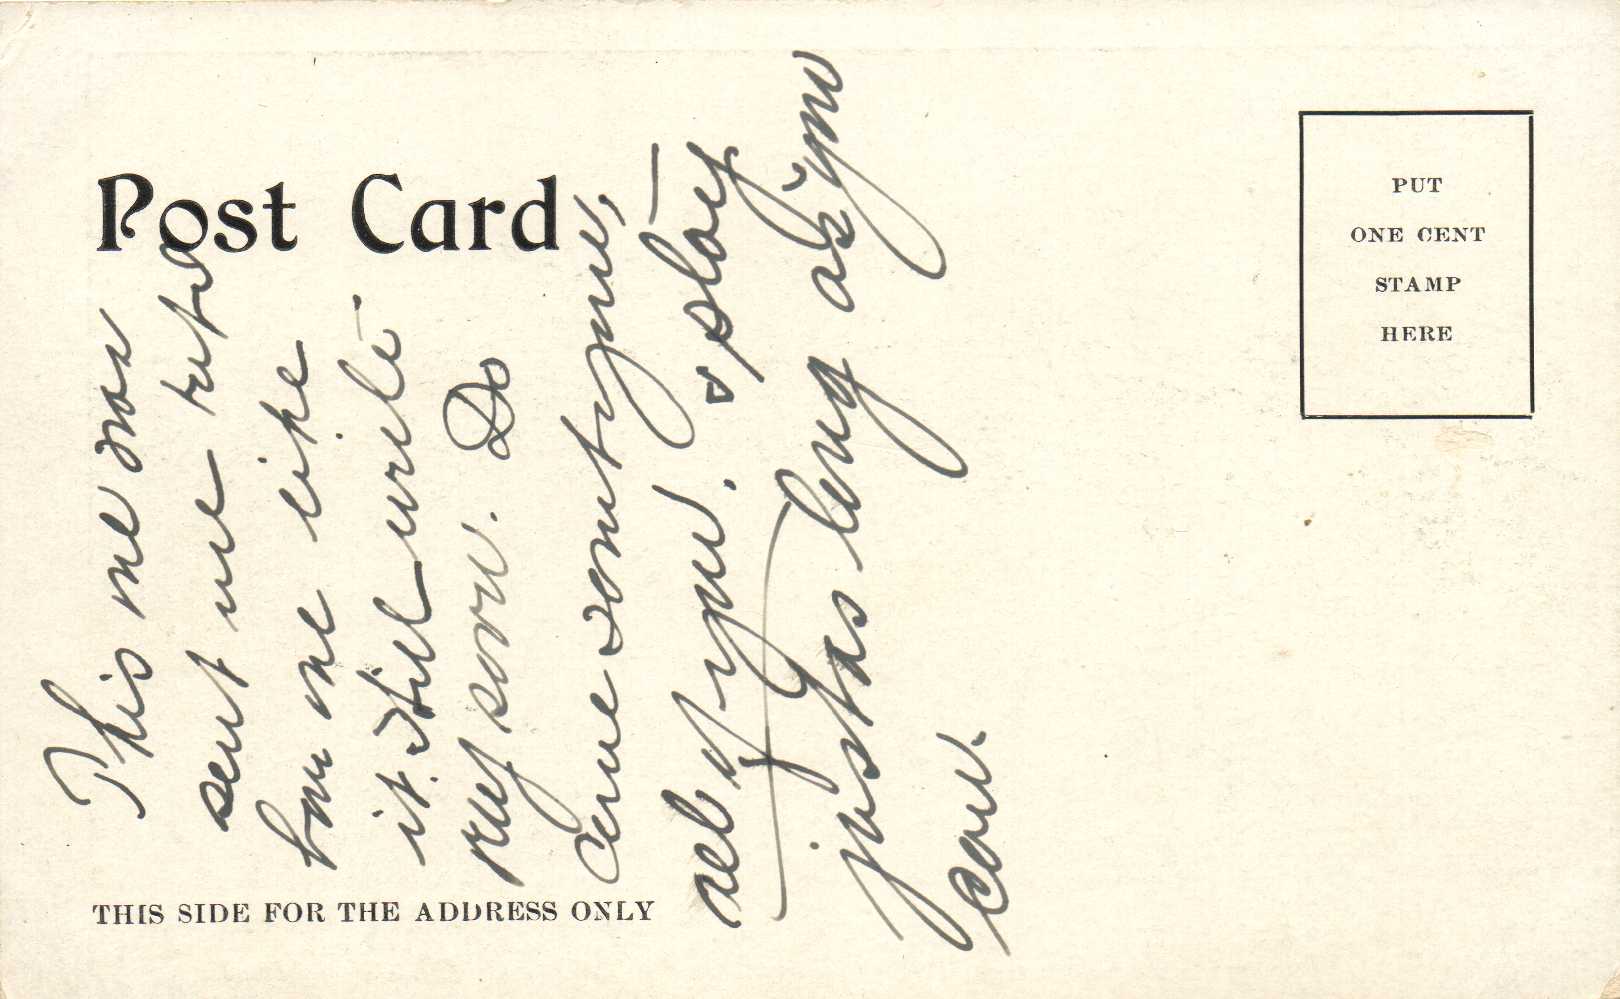 Post Card
THIS SIDE FOR THE ADDRESS ONLY
PUT
ONE CENT
STAMP
HERE
This one was
sent me
how one like
it. Will write
very soon. Do
come
all of you. & stay
just as long as you
can.